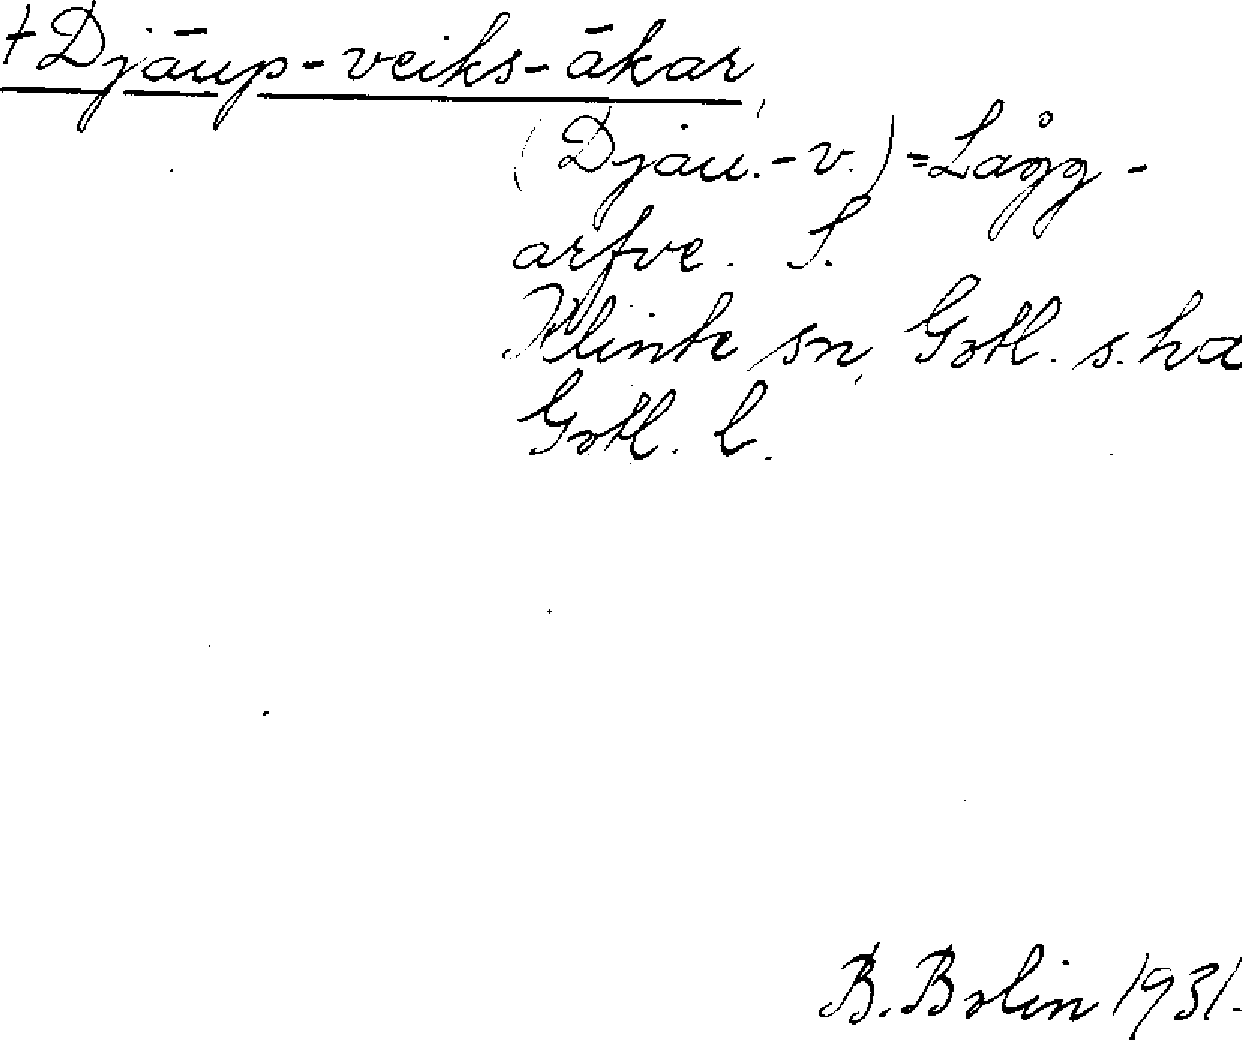 † Djāup-veiks-ākar,
(Djau.-v.) = Lågg-
arfve. S.
Klinte sn, Gotl. s. hd
Gotl. l.
B. Bolin 1931.